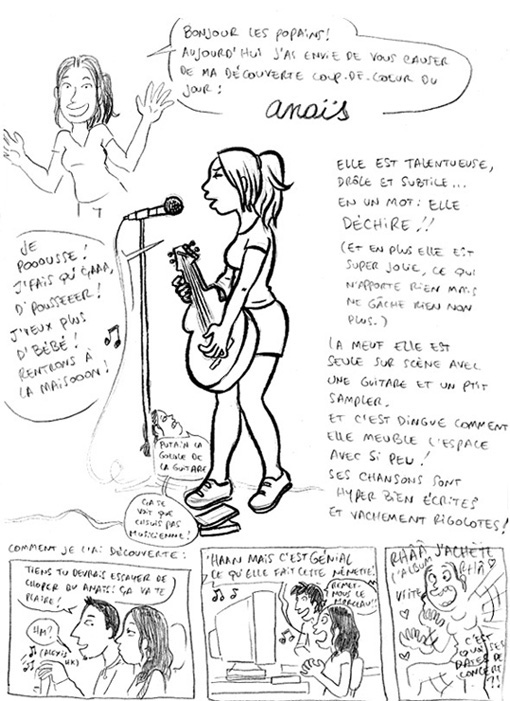 BONJOUR LES POPAINS!
AUJOURD'HUI J'AI ENVIE DE VOUS CAUSER
DE MA DÉCOUVERTE COUP-DE-COEUR DU
JOUR:
anaïs
ELLE EST TALENTUEUSE,
DRÔLE ET SUBTILE...
EN UN MOT: ELLE
DÉCHIRE!!
(ET EN PLUS ELLE EST
SUPER JOLIE, CE QUI
N'APPORTE RIEN MAIS
NE GÂCHE RIEN NON
PLUS.)
LA MEUF ELLE EST
SEULE SUR SCÈNE AVEC
UNE GUITARE ET UN PTIT
SAMPLER.
ET C'EST DINGUE COMMENT
ELLE MEUBLE L'ESPACE
AVEC SI PEU!
SES CHANSONS SONT
HYPER BIEN ÉCRITES
ET VACHEMENT RIGOLOTES!
JE
POOOUSSE!
J'FAIS QU'ÇAAA,
D'POUSSEEER!
J'VEUX PLUS
D'BÉBÉ!
RENTRONS À
LA MAISOOON!
PUTAIN LA
GUEULE DE
LA GUITARE
ÇA SE
VOIT QUE
CHUIS PAS
MUSICIENNE!
COMMENT JE L'AI DÉCOUVERTE:
TIENS TU DEVRAIS ESSAYER DE
CHOPER DU ANAÏS! ÇA VA TE
PLAIRE!
HM?
(ALEXIS
HK)
'HAAN MAIS C'EST GÉNIAL
CE QU'ELLE FAIT CETTE NÉNETTE!
REMET-
NOUS LE
MORCEAU!!
RHÂÂ, J'ACHÈTE
L'ALBUM
VITE
RHÂ
C'EST
QUAND SES
DATES DE
CONCERT
?!!